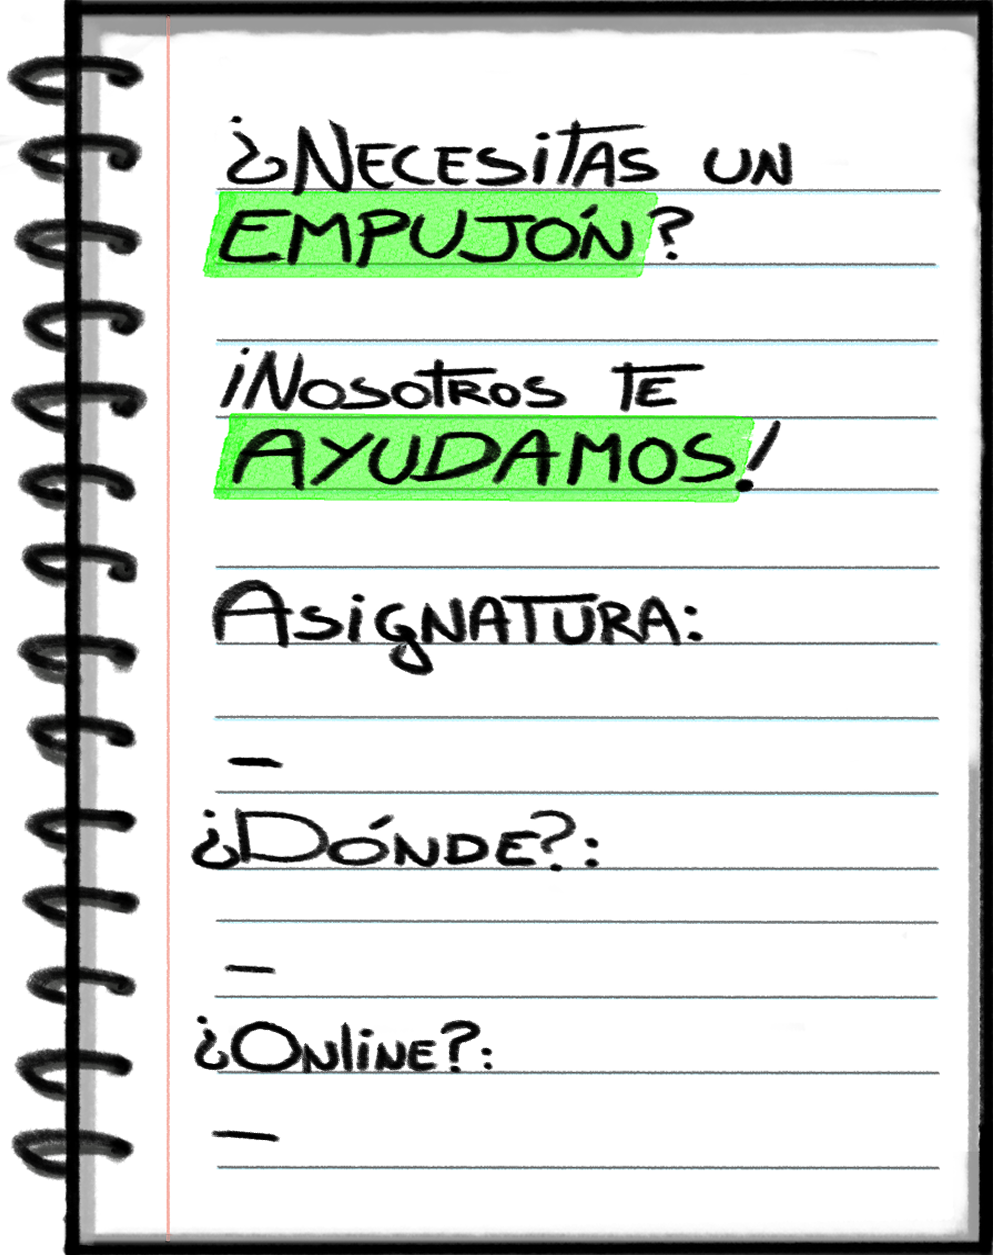 ¿Necesitas un
EMPUJÓN?
¡Nosotros te
AYUDAMOS!
Asignatura:
–
¿Dónde?:
–
¿Online?:
–